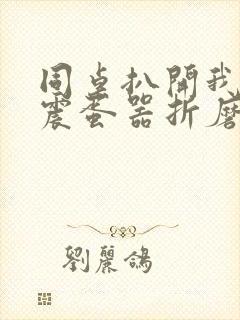 同桌扒開我
震蛋器折磨
劉麗鴿